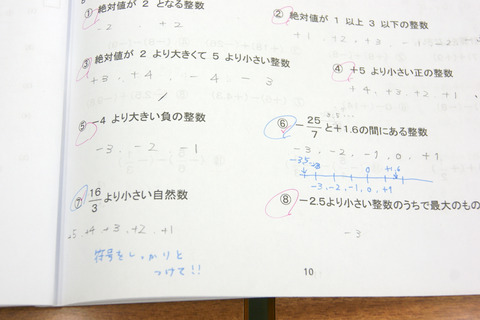 ① 絶対値が 2 となる整数
2 +2
② 絶対値が 1 以上 3 以下の整数
+1 +2 , +3
③ 絶対値が 2 より大きくて 5 より小さい整数
+3 , +4 , -4 , -3
④ +5 より小さい正の整数
+4 , +3 , +2 , +1
⑤ -4 より大きい負の整数
-3 , -2 , -1
⑥ -25/7 と+1.6の間にある整数
-3 , -2 , -1 , 0 , +1
0 +1.6
-3 , -2 , -1 , 0 , +1
⑦ 16/3 より小さい自然数
+4 , +3 , +2 , +1
符号をしっかりと
つけて!!
⑧ -2.5より小さい整数のうちで最大のもの
-3
10